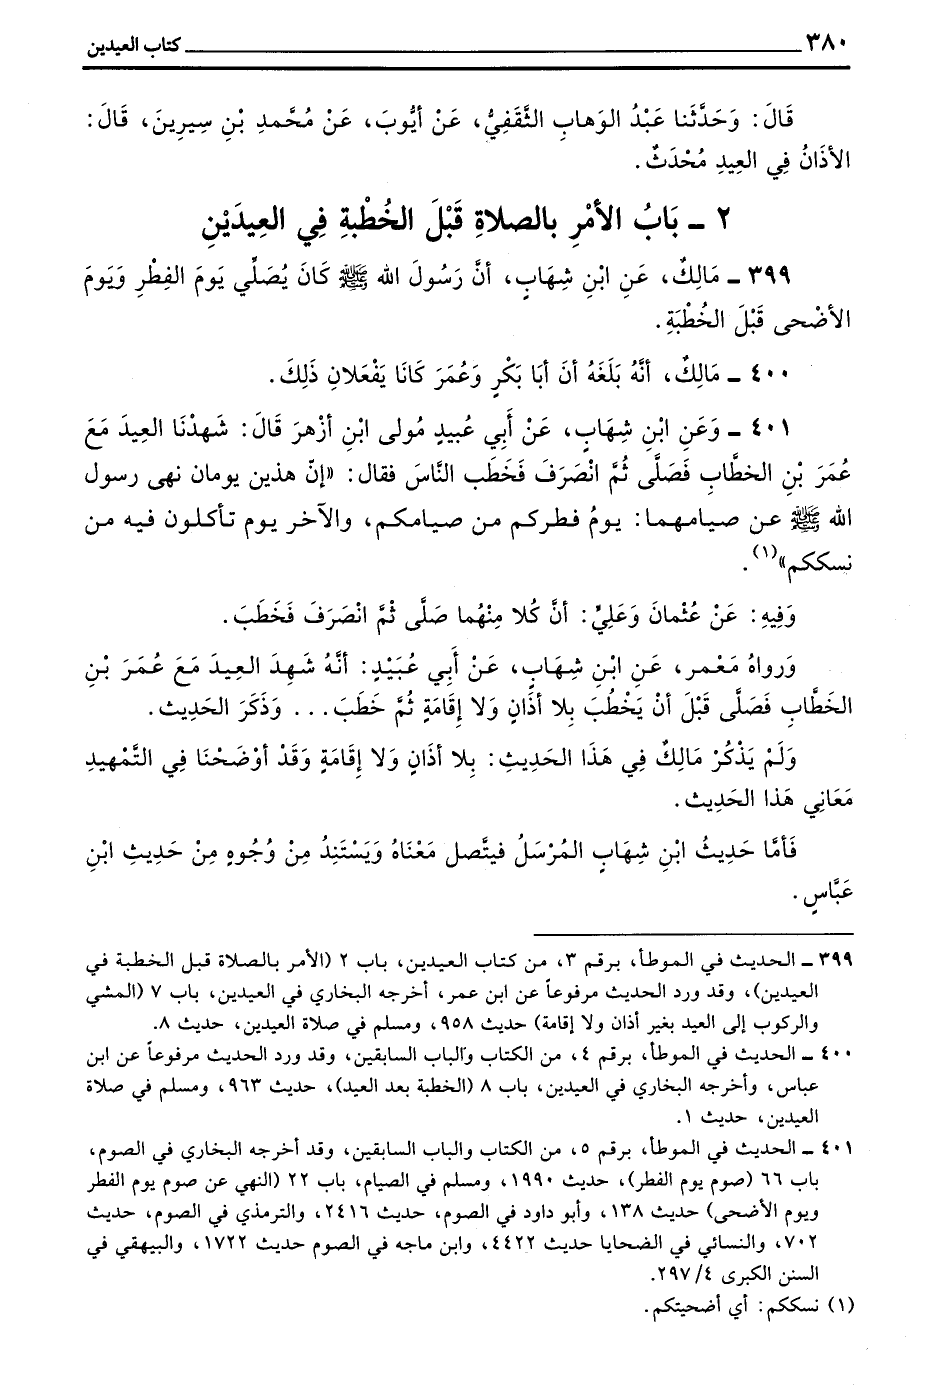 ٣٨٠ كتاب العيدين
قَالَ: وَحَدَّثَنا عَبْدُ الوَهابِ الثَّقَفِيُّ، عَنْ أيُّوبَ، عَنْ مُحَّمدِ بْنِ سِيرِينَ، قَالَ:
الأذَانُ فِي العِيدِ مُحْدَثٌ.
٢ ـ بَابُ الأمْرِ بالصلاةِ قَبْلَ الخُطْبةِ فِي العِيدَيْنِ
٣٩٩ ـ مَالِكٌ، عَنِ ابْنِ شِهَابٍ، أنَّ رَسُولَ الله ﷺ كَانَ يُصَلِّي يَومَ الفِطْرِ وَيَومَ
الأضْحى قَبْلَ الخُطْبَةِ.
٤٠٠ ـ مَالِكٌ، أنَّهُ بَلَغَهُ أنَ أبَا بَكْرٍ وَعُمَرَ كَانَا يَفْعَلانِ ذَلِكَ.
٤٠١ ـ وَعَنِ ابْنِ شِهَابٍ، عَنْ أَبِي عُبيدٍ مُولى ابْنِ أزْهرَ قَالَ: شَهدْنَا العِيدَ مَعَ
عُمَرَ بْنِ الخطَّابِ فَصَلَّى ثُمَّ انْصَرَفَ فَخَطَب النَّاسَ فقال: «إنّ هذين يومان نهى رسول
الله ﷺ عن صيامهما: يومُ فطركم من صيامكم، والآخر يوم تأكلون فيه من
نسككم»(١).
وَفِيهِ: عَنْ عُثْمانَ وَعَلِيٍّ: أنَّ كُلا مِنْهُما صَلَّى ثُمَّ انْصَرَفَ فَخَطَبَ.
وَرواهُ مَعْمر، عَنِ ابْنِ شِهَابٍ، عَنْ أَبِي عُبَيْدٍ: أنَّهُ شَهِدَ العِيدَ مَعَ عُمَرَ بْنِ
الخَطَّابِ فَصَلَّى قَبْلَ أنْ يَخْطُبَ بِلا أذَانٍ وَلا إقَامَةٍ ثُمَّ خَطَبَ... وَذَكَرَ الحَدِيث.
وَلَمْ يَذْكُرْ مَالِكٌ فِي هَذَا الحَدِيثِ: بِلا أذَانٍ وَلا إقَامَةٍ وَقَدْ أوْضَحْنَا فِي التَّمْهِيدِ
مَعَانِي هَذا الحَدِيث.
فَأمَّا حَدِيثُ ابْنِ شِهَابٍ المُرْسَلُ فيتَّصل مَعْنَاهُ وَيَسْتَنِدُ مِنْ وُجُوهٍ مِنْ حَدِيثِ ابْنِ
عَبَّاسٍ.
٣٩٩ ـ الحديث في الموطأ، برقم ٣، من كتاب العيدين، باب ٢ (الأمر بالصلاة قبل الخطبة في
العيدين)، وقد ورد الحديث مرفوعاً عن ابن عمر، أخرجه البخاري في العيدين، باب ٧ (المشي
والركوب إلى العيد بغير أذان ولا إقامة) حديث ٩٥٨، ومسلم في صلاة العيدين، حديث ٨.
٤٠٠ ـ الحديث في الموطأ، برقم ٤، من الكتاب والباب السابقين، وقد ورد الحديث مرفوعاً عن ابن
عباس، وأخرجه البخاري في العيدين، باب ٨ (الخطبة بعد العيد)، حديث ٩٦٣، ومسلم في صلاة
العيدين، حديث ١.
٤٠١ ـ الحديث في الموطأ، برقم ٥، من الكتاب والباب السابقين، وقد أخرجه البخاري في الصوم،
باب ٦٦ (صوم يوم الفطر)، حديث ١٩٩٠، ومسلم في الصيام، باب ٢٢ (النهي عن صوم يوم الفطر
ويوم الأضحى) حديث ١٣٨، وأبو داود في الصوم، حديث ٢٤١٦، والترمذي في الصوم، حديث
٧٠٢، والنسائي في الضحايا حديث ٤٤٢٢، وابن ماجه في الصوم حديث ١٧٢٢، والبيهقي في
السنن الكبرى ٤/ ٢٩٧.
(١) نسككم: أي أضحيتكم.